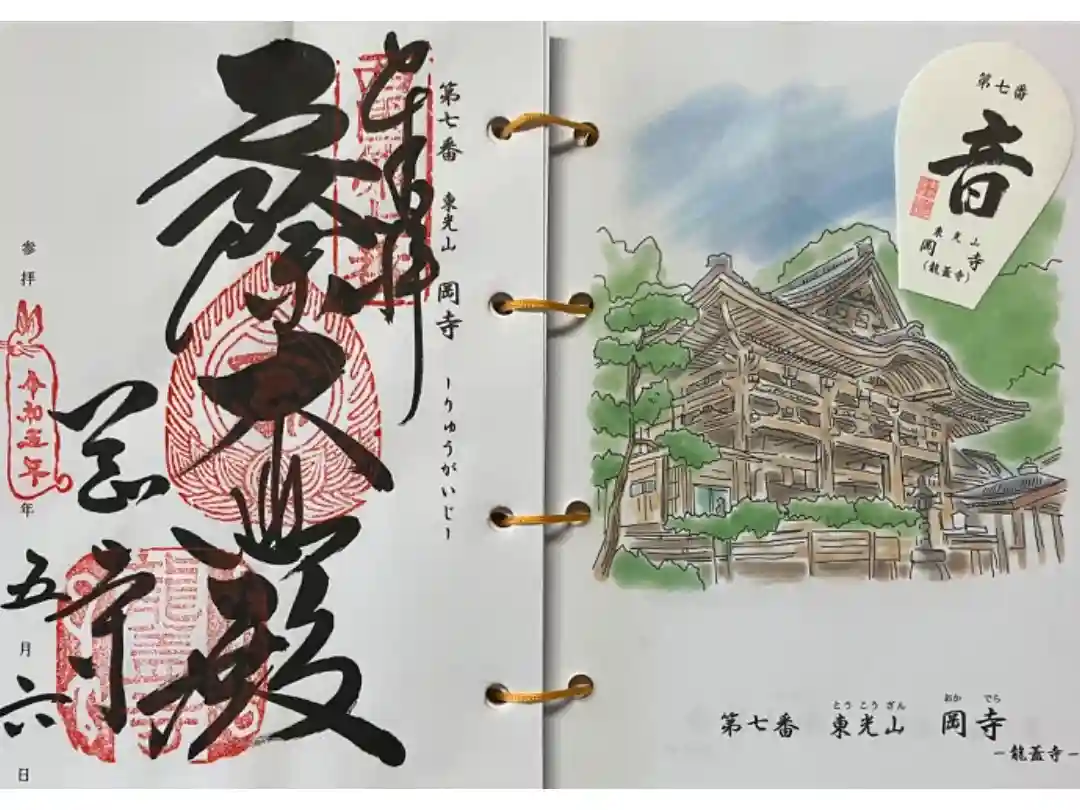 第七番 東光山 岡寺 -りゅうがいじ-
奉拝
厄除大悲殿
岡寺
参拝 令和五年 年 五月六日
第七番
音
東光山
岡寺
(龍蓋寺)
第七番 東光山 岡寺
とうこうざん おかでら
-龍蓋寺-